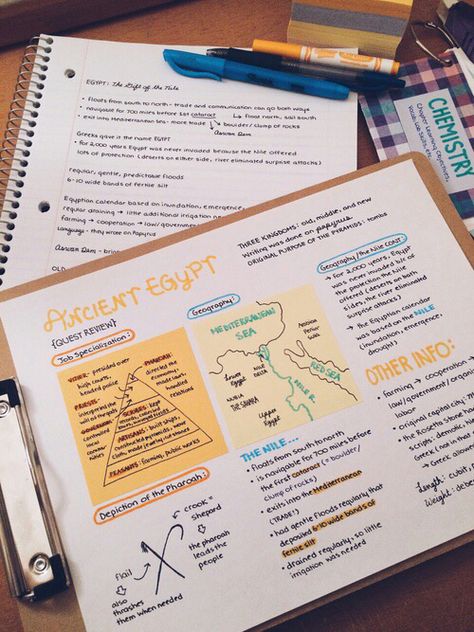 EGYPT: The Gift of the Nile
• floats from south to north - trade and communication can go both ways
• navigable for 700 miles before 1st cataract ↳ float north, sail south
• exit into Mediterranean sea - more trade ↳ boulder / clump of rocks
Aswan Dam
Greeks gave it the name EGYPT
• for 2,000 years Egypt was never invaded because the Nile offered
lots of protection (deserts on either side, river eliminated surprise attacks)
regular, gentle, predictable floods
6-10 wide bands of fertile silt
Egyptian calendar based on inundation, emergence,
regular draining → little additional irrigation
farming → cooperation → law/government
Language - they wrote on Papyrus
Aswan Dam -
OLD
CHEMISTRY
Chapter Learning Objectives,
Vocab, Lab Skills,
etc.
ANCIENT EGYPT
{QUEST REVIEW}
THREE KINGDOMS: old, middle, and new
Writing was done on papyrus
ORIGINAL PURPOSE OF THE PYRAMIDS: tombs
Job Specialization:
VIZIER: presided over
high courts,
headed police
PHAROAH:
directed the
economy,
made laws,
handled
relations
PRIESTS:
interpreted the
will of the gods
GOVERNORS:
controlled
local
SCRIBES: kept
ARTISANS: built ships,
constructed pyramids, wove
cloth, made jewelry, cut stones
PEASANTS: farming, public works
Geography:
MEDITERRANEAN
SEA
Lower
Egypt
NILE
DELTA
NUBIA
THE SAHARA
Upper
Egypt
NILE R
RED SEA
Geography/the Nile CONT.
→ for 2000 years, Egypt
was never invaded b/c of
the protection the Nile
offered (deserts on both
sides, the river eliminated
surprise attacks)
→ the Egyptian calendar
was based on the NILE
(inundation, emergence,
drought)
THE NILE...
• floats from south to north
• is navigable for 700 miles before
the first cataract (= boulder/
clump of rocks)
• exits into the Mediterranean
(TRADE!)
• had gentle floods regularly that
deposited 6-10 wide bands of
fertile silt
• drained regularly, so little
irrigation was needed
OTHER INFO:
• farming → cooperation
law/government/organized
labor
• original capital city:
• the Rosetta Stone
scripts: demotic,
Greek
→ Greek
Length: cubit
Weight: deben
Depiction of the Pharoah:
crook =
shepard
↳ the pharoah
leads the
people
flail
↳ also
thrashes
them when needed